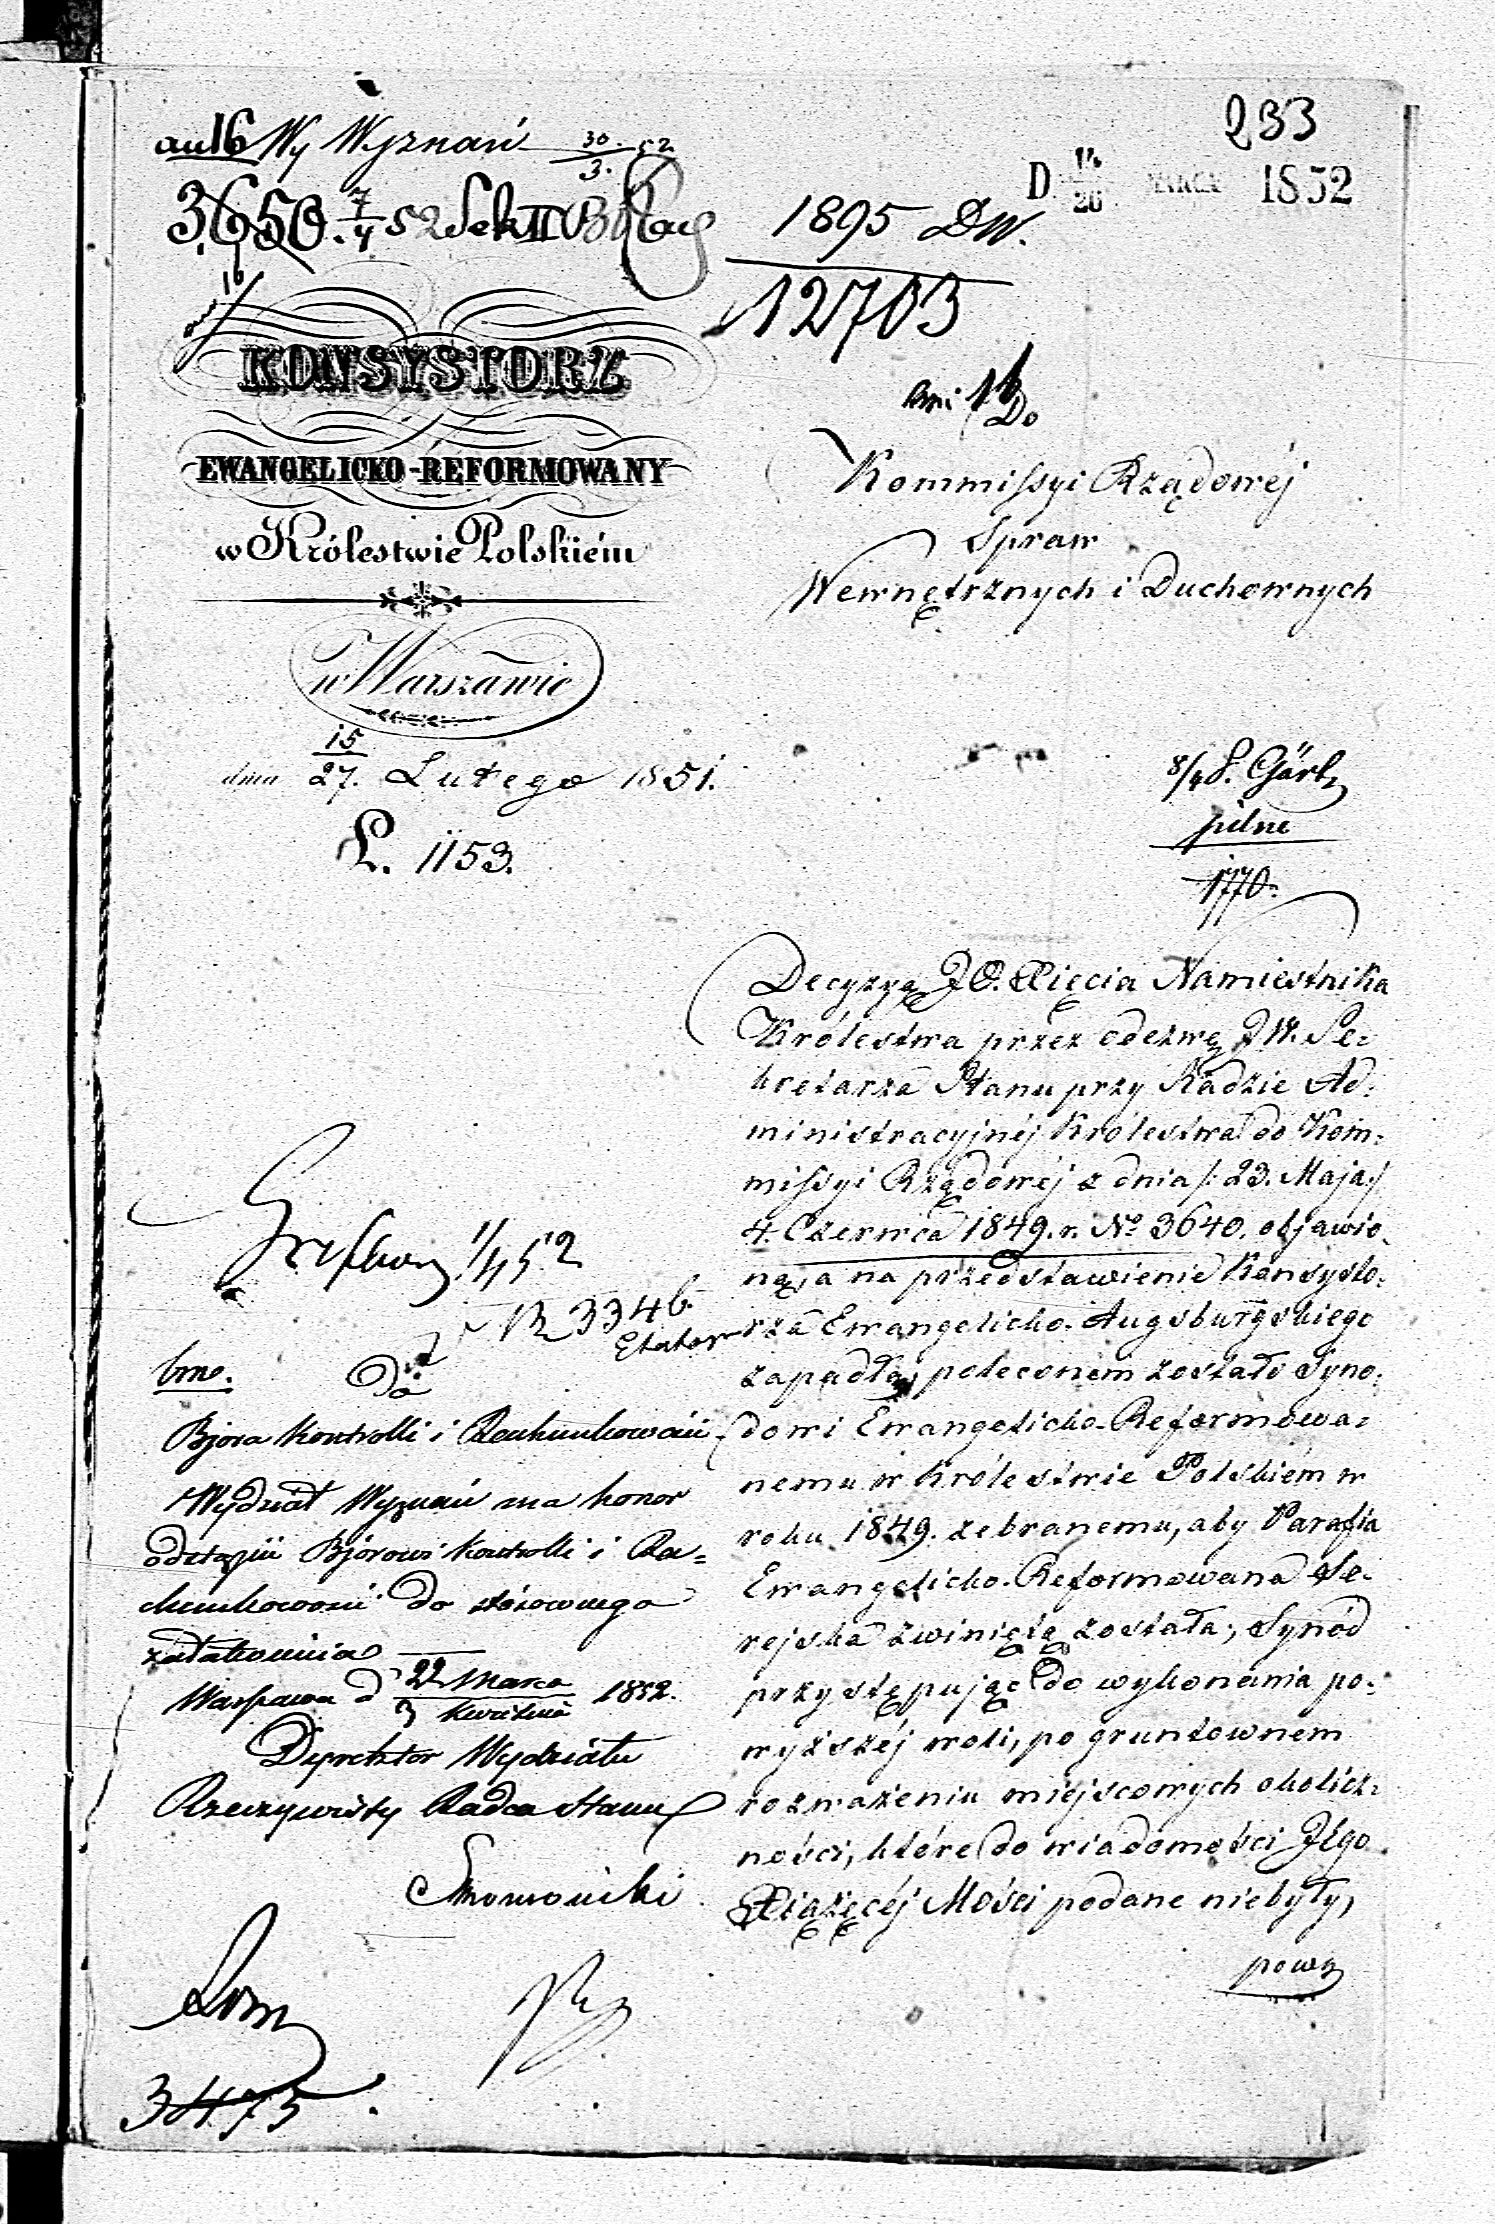 233
an 16 Wy Wyznań 30/3. 52
D 14/26 MARCA 1852
3650. 7/4 52 Sek II
1895 DW.
12703
KONSYSTORZ
EWANGELICKO-REFORMOWANY
w Królestwie Polskiém
w Warszawie
dnia 15/27. Lutego 1851.
L. 1153.
Do
Kommissyi Rządowéj
Spraw
Wewnętrznych i Duchownych
pilne
1770.
Decyzyą J.O. Xięcia Namiestnika
Królestwa przez odezwę JW. Se-
kretarza Stanu przy Radzie Ad-
ministracyjnéj Królestwa do Kom-
missyi Rządowéj z dnia /: 23. Maja /
4. Czerwca 1849. r. No 3640. objawio-
ną, a na przedstawienie Konsysto-
rza Ewangelicko-Augsburgskiego
zapadłą, poleconem zostało Syno-
dowi Ewangelicko-Reformowa-
nemu w Królestwie Polskiém w
roku 1849. zebranemu, aby Parafia
Ewangelicko-Reformowana Se-
rejska zwiniętą została; Synód
przystępując do wykonania po-
wyższéj woli, po gruntownem
rozważeniu miejscowych okolicz-
ności, które do wiadomości JEgo
Xiążęcéj Mości podane niebyły,
powz
1/4 52
R 3346
bmo.
Do
Bióra Kontrolli i Rachunkowości
Wydział Wyznań ma honor
odstąpić Biórowi Kontrolli i Ra=
chunkowości do stósownego
załatwienia
Warszawa d 22 Marca / 3 Kwietnia 1852.
Dyrektor Wydziału
Rzeczywisty Radca Stanu
3475